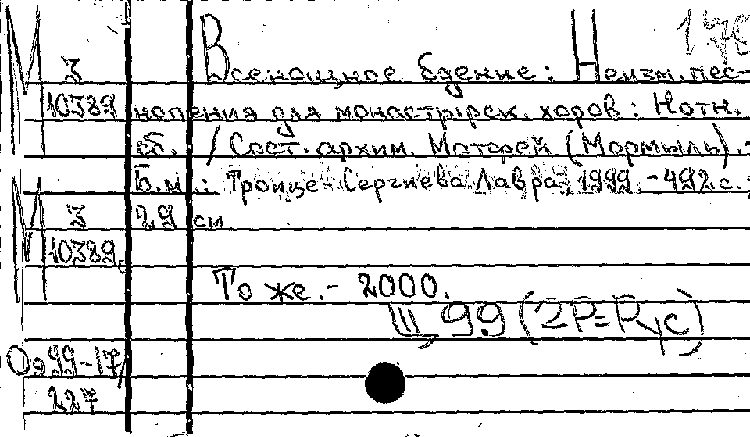 178
М З Всенощное бдение: Неизм. пес-
10389 нопения для монастырск. хоров: Нотн.
сб. / Сост. архим. Матфей (Мормыль). -
Б.м.: Троице-Сергиева Лавра, 1999. - 492 с. -
М З 29 см
10389
То же. - 2000.
Щ 99 (2Р=Рус)
Оэ 99-17/
227